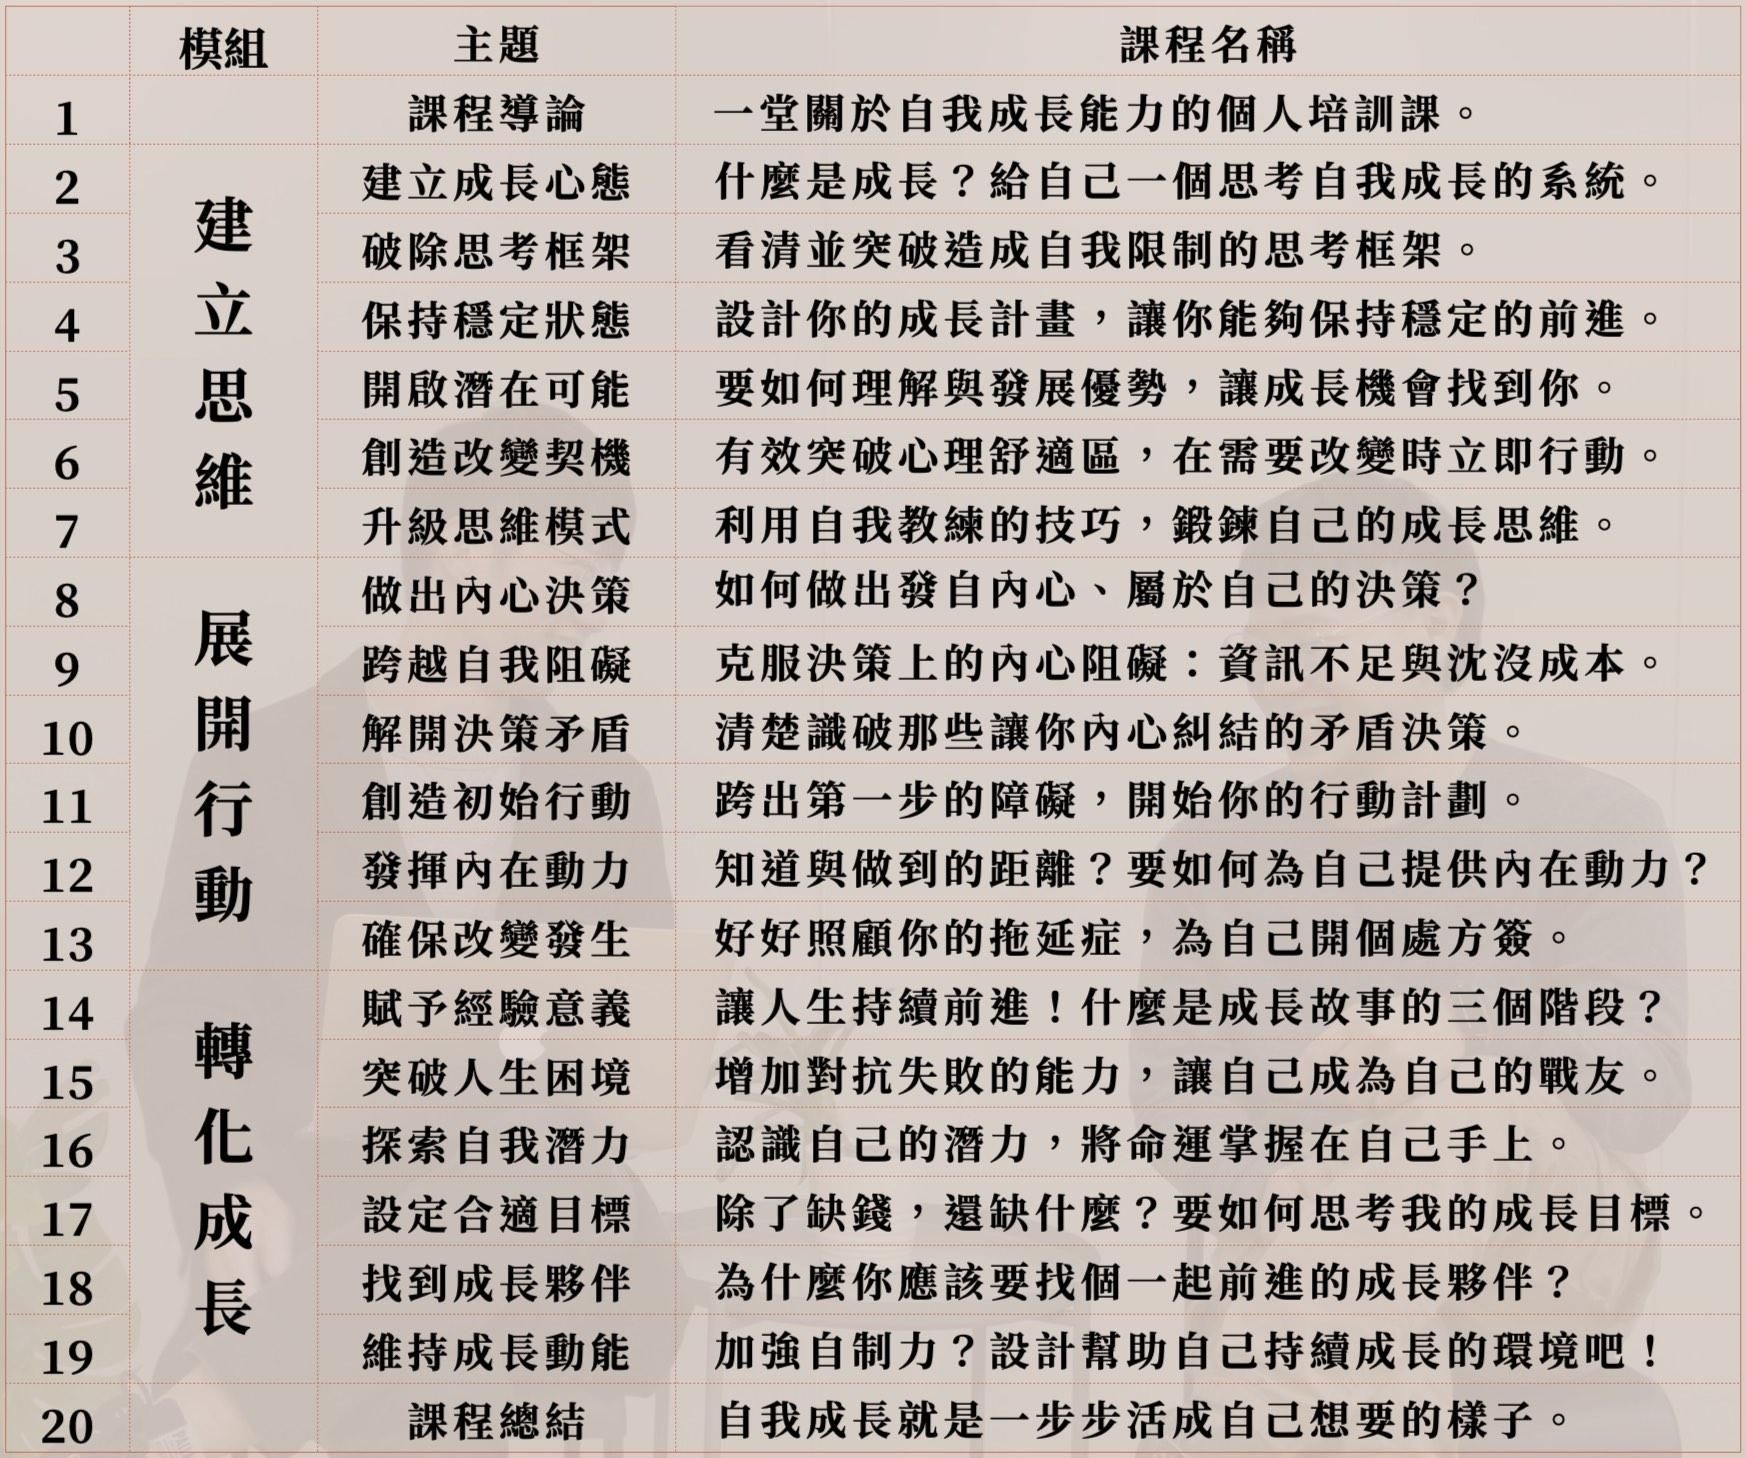 模組 主題 課程名稱
1 課程導論 一堂關於自我成長能力的個人培訓課。
建立思維
2 建立成長心態 什麼是成長？給自己一個思考自我成長的系統。
3 破除思考框架 看清並突破造成自我限制的思考框架。
4 保持穩定狀態 設計你的成長計畫，讓你能夠保持穩定的前進。
5 開啟潛在可能 要如何理解與發展優勢，讓成長機會找到你。
6 創造改變契機 有效突破心理舒適區，在需要改變時立即行動。
7 升級思維模式 利用自我教練的技巧，鍛鍊自己的成長思維。
展開行動
8 做出內心決策 如何做出發自內心、屬於自己的決策？
9 跨越自我阻礙 克服決策上的內心阻礙：資訊不足與沈沒成本。
10 解開決策矛盾 清楚識破那些讓你內心糾結的矛盾決策。
11 創造初始行動 跨出第一步的障礙，開始你的行動計劃。
12 發揮內在動力 知道與做到的距離？要如何為自己提供內在動力？
13 確保改變發生 好好照顧你的拖延症，為自己開個處方簽。
轉化成長
14 賦予經驗意義 讓人生持續前進！什麼是成長故事的三個階段？
15 突破人生困境 增加對抗失敗的能力，讓自己成為自己的戰友。
16 探索自我潛力 認識自己的潛力，將命運掌握在自己手上。
17 設定合適目標 除了缺錢，還缺什麼？要如何思考我的成長目標。
18 找到成長夥伴 為什麼你應該要找個一起前進的成長夥伴？
19 維持成長動能 加強自制力？設計幫助自己持續成長的環境吧！
20 課程總結 自我成長就是一步步活成自己想要的樣子。